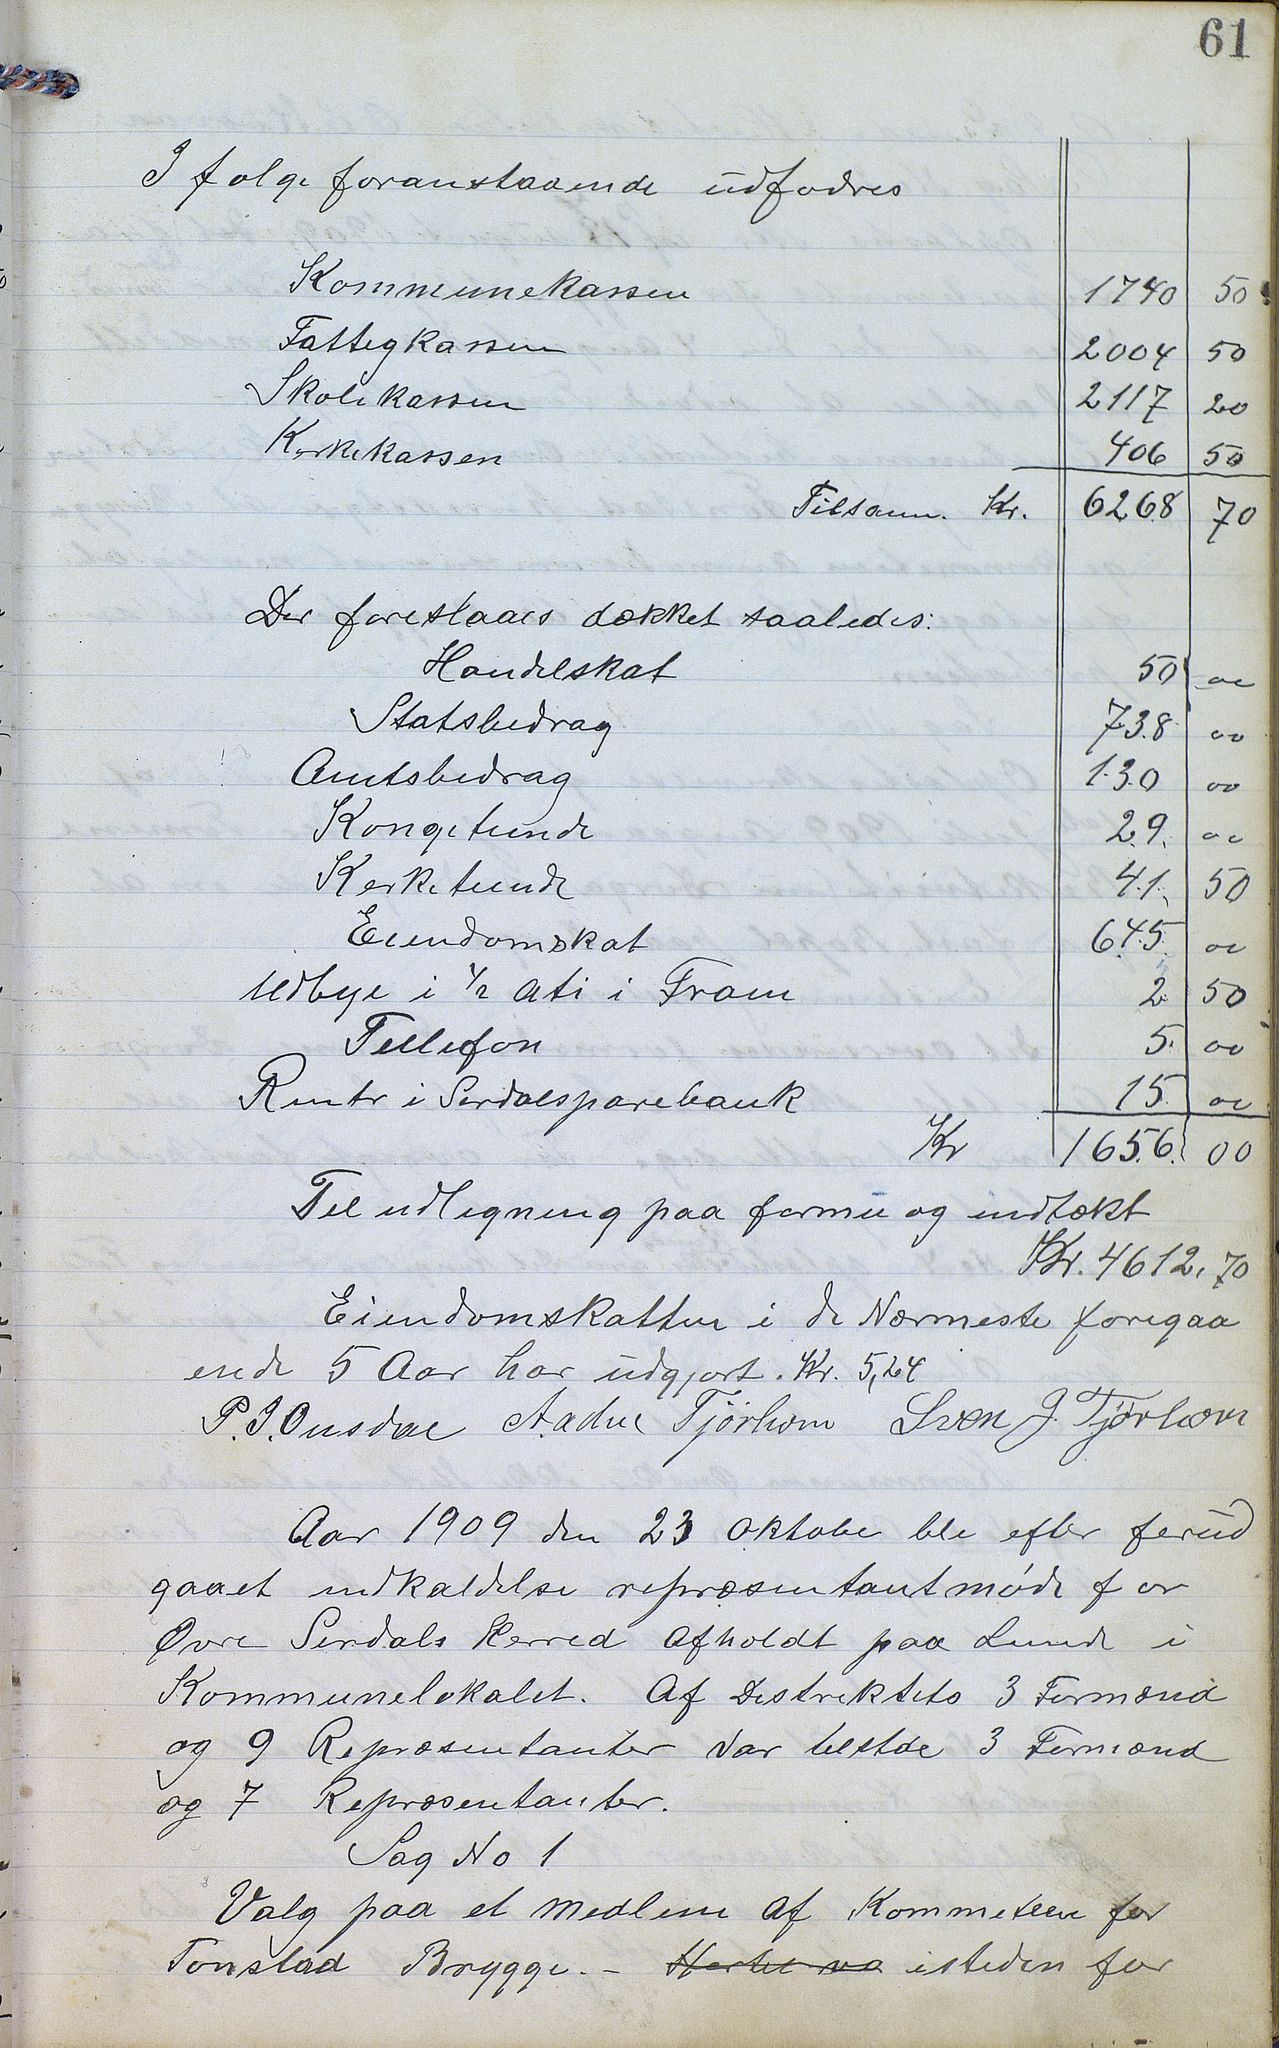 61
I følge foranstaaende udfodres
Kommunekassen 1740 50
Fattegkassen 2004 50
Skolekassen 2117 20
Kerkekassen 406 50
Tilsam. Kr. 6268 70
Der foreslaaes dækket saaledes:
Handelskat 50 00
Statsbedrag 738 00
Amtsbedrag 130 00
Kongetiende 29 00
Kerketiende 41 50
Eiendomskat 645 00
Udbye i 1/2 Ati i Fram 2 50
Tellefon 5 00
Renter i Serdalsparebank 15 00
Kr 1656. 00
Til udlegning paa formue og indtækt
Kr. 4612,70
Eiendomskatten i de Nærmeste foregaa
ende 5 Aar har udgjort. Kr. 5,24
P. J. Ousdal Aadne Tjørhom Sven J. Tjørhom
Aar 1909 den 23 oktobe ble efter forud
gaaet indkaldelse repræsentantmøde for
Øvre Serdals Herred afholdt paa Lunde i
Kommunelokalet. Af Destrektets 3 Formænd
og 9 Repræsentanter var telstde 3 Formænd
og 7 Repræsentanter.
Sag No 1
Valg paa et medlem af Kommeteen for
Tonstad Brygge. – isteden for